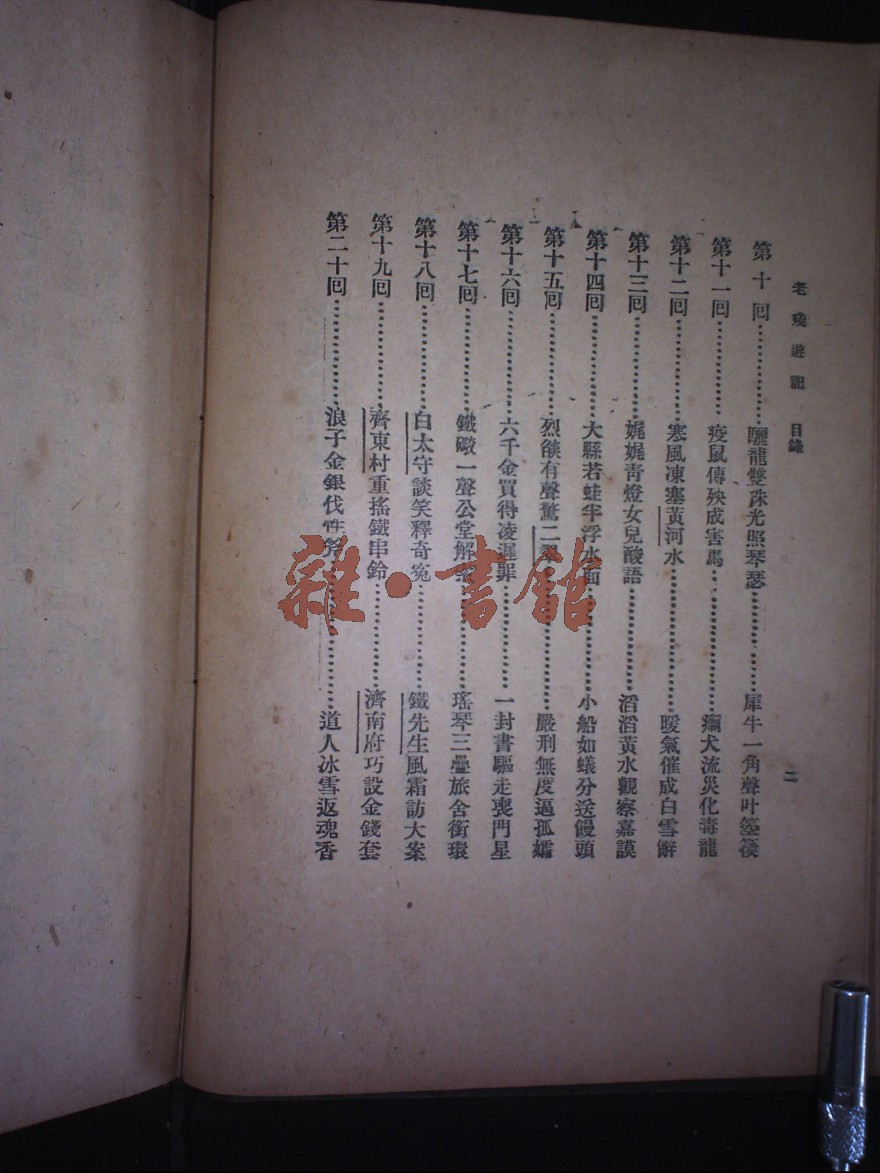 老殘遊記 目錄
二
第十回……驪龍雙珠光照琴瑟……犀牛一角聲叶箜篌
第十一回……疫鼠傳殃成害馬……瘈犬流災化毒龍
第十二回……寒風凍塞黃河水……暖氣催成白雪辭
第十三回……娓娓青燈女兒酸語……滔滔黃水觀察嘉謨
第十四回……大縣若蛙半浮水面……小船如蟻分送饅頭
第十五回……烈燄有聲驚二翠……嚴刑無度逼孤孀
第十六回……六千金買得凌遲罪……一封書驅走喪門星
第十七回……鐵礮一聲公堂解索……瑤琴三疊旅舍銜環
第十八回……白太守談笑釋奇冤……鐵先生風霜訪大案
第十九回……齊東村重搖鐵串鈴……濟南府巧設金錢套
第二十回……浪子金銀伐性斧……道人冰雪返魂香
雜·書館